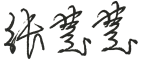 张慧慧